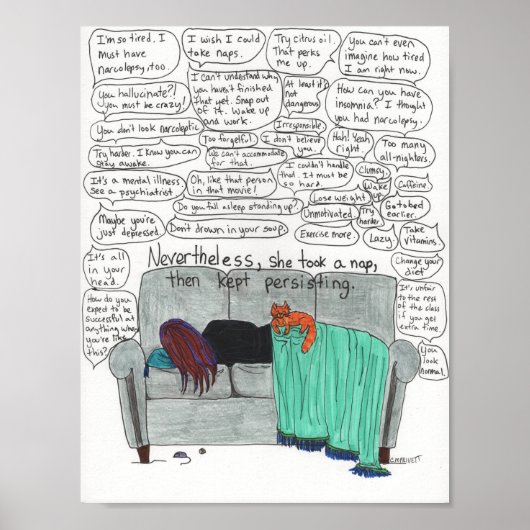 I'm so tired. I
must have
narcolepsy, too.
I wish I could
take naps.
Try citrus oil.
That perks
me up.
You can't even
imagine how tired
I am right now.
You hallucinate?!
You must be crazy!
I can't understand why
you haven't finished
that yet. Snap out
of it. Wake up
and work.
At least it's
not
dangerous
How can you have
insomnia? I thought
you had narcolepsy.
You don't look narcoleptic
Too forgetful.
Irresponsible
I don't believe
you.
Hah! Yeah
right.
Too many
all-nighters.
Try harder. I know you can
stay awake.
We can't accommodate
for that.
I couldn't handle
that. It must be
so hard.
Clumsy.
Wake
up
Caffeine.
It's a mental illness
See a psychiatrist
Oh, like that person
in that movie!
Lose weight
Do you fall asleep standing up?
Unmotivated
Try
harder
Go to bed
earlier.
Maybe you're
just depressed.
Don't drown in your soup.
Exercise more.
Lazy.
Take
vitamins.
It's all
in your
head.
Nevertheless, she took a nap,
then kept persisting.
Change your
diet
How do you
expect to be
successful at
anything when
you're like
this?
It's unfair
to the rest
of the class
if you get
extra time
You
look
normal.
CMPRIVETT